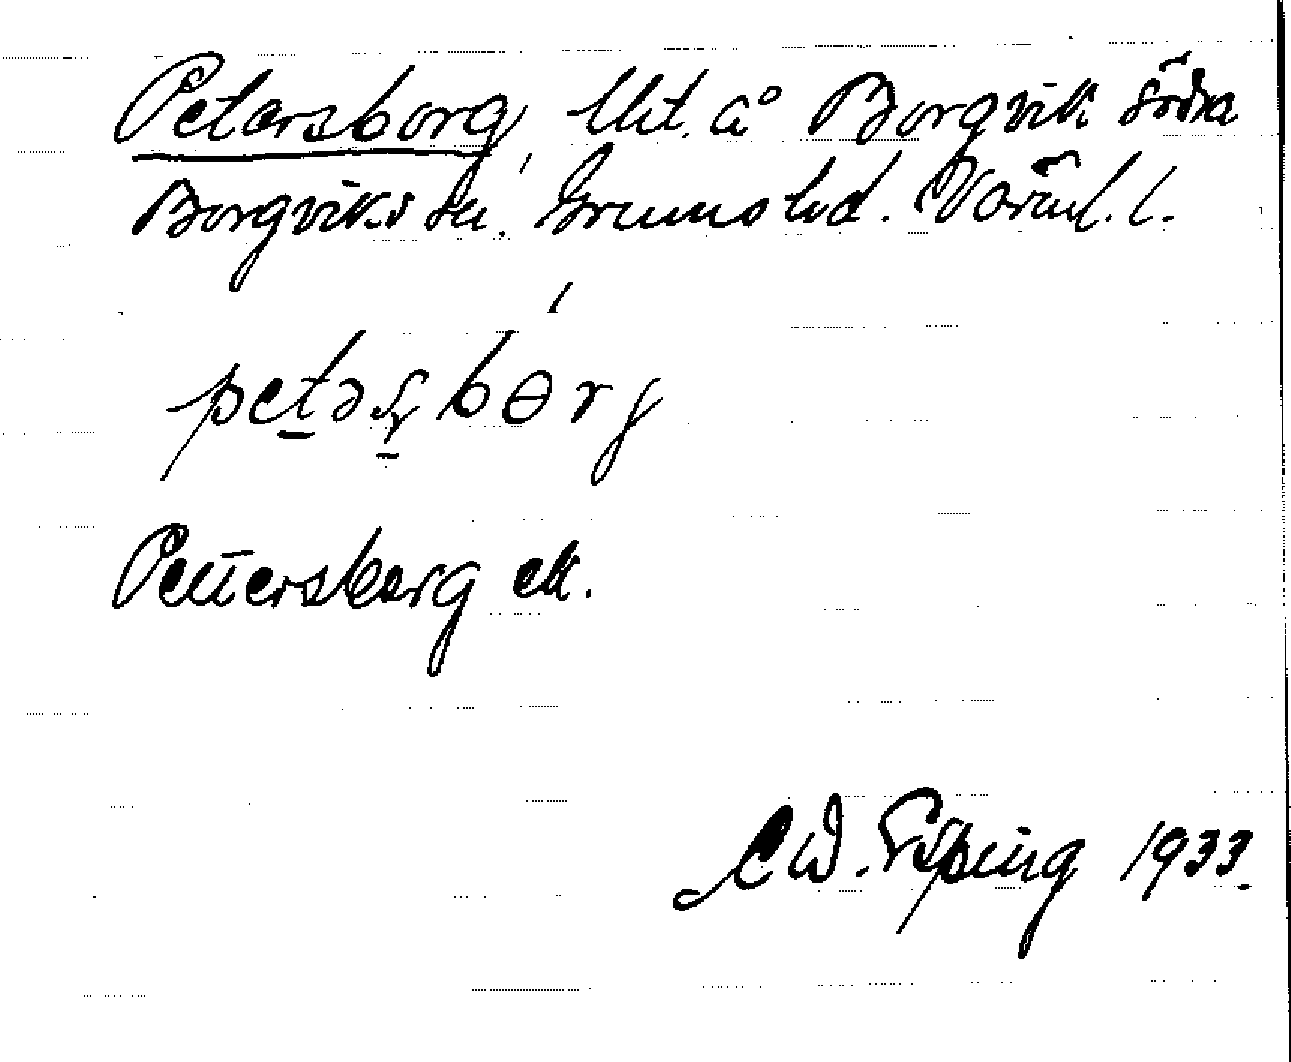 Petersborg, lht. å Borgvik södra
Borgviks sn. Grums hd. Värml. l.
petəʂbɵrg
Pettersberg ek.
C W. Esping 1933.